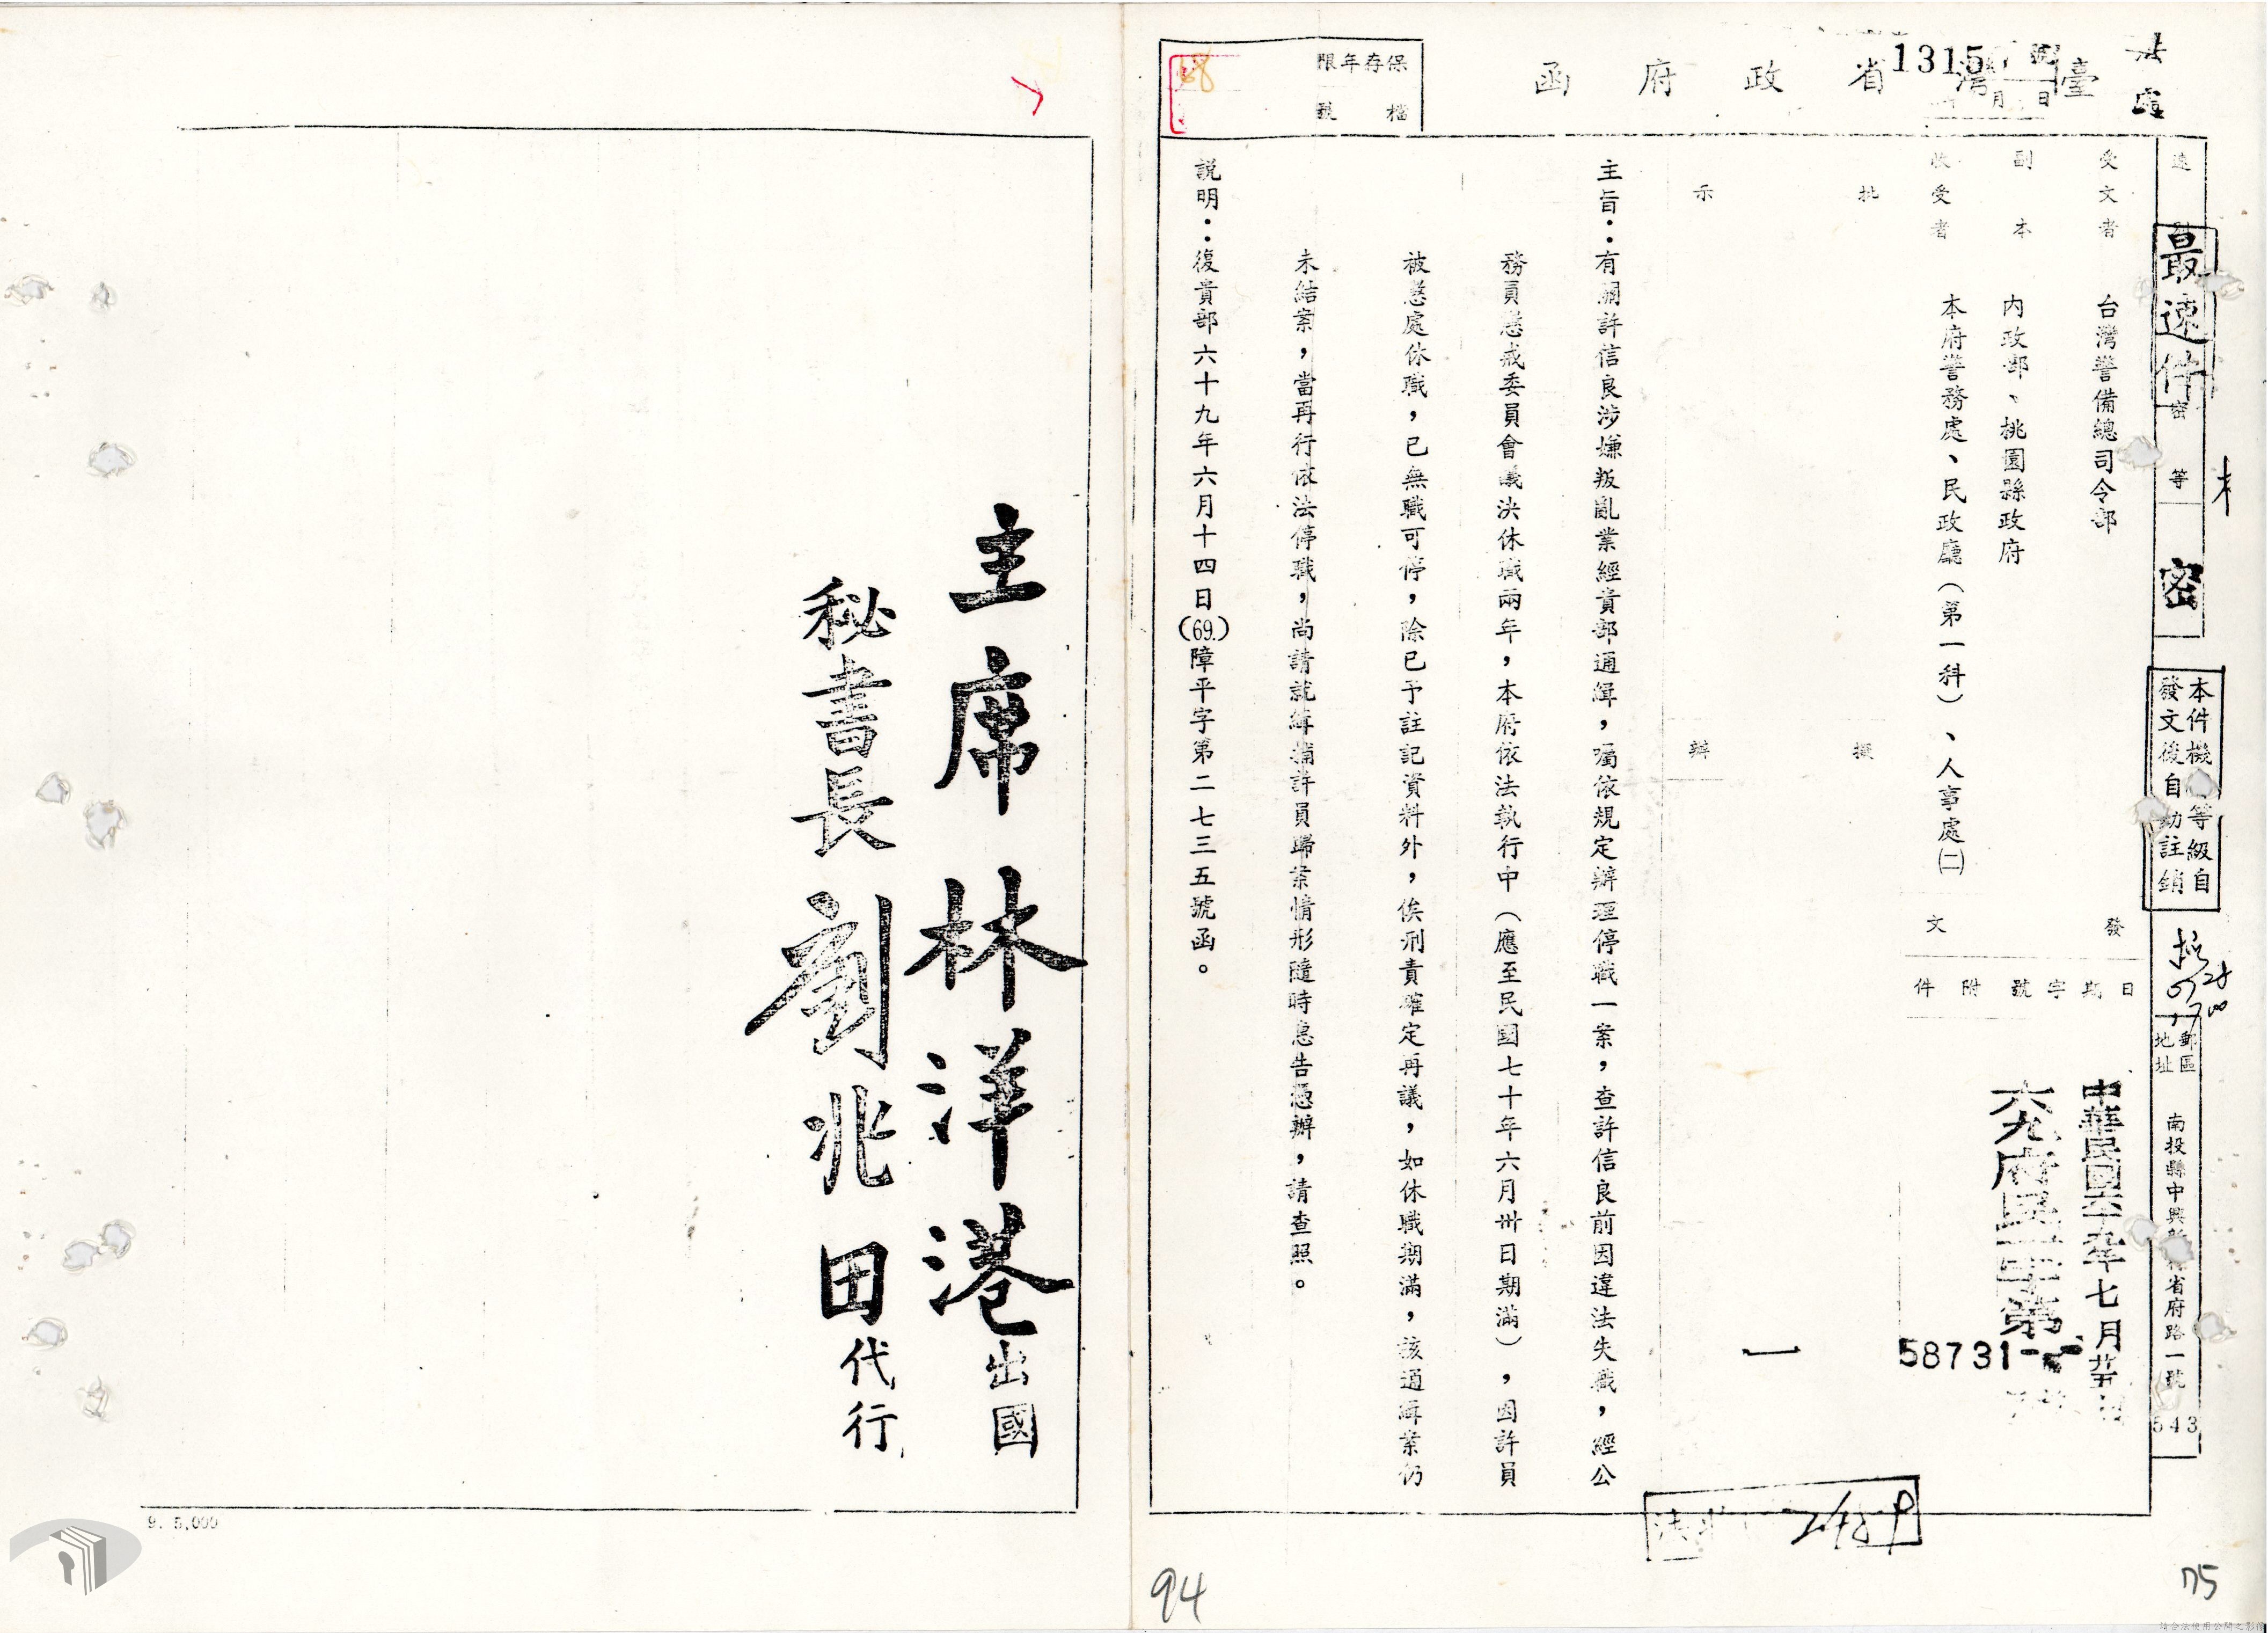 臺灣省政府函
1315
號
月 日
保存年限
檔號
68
最速件
密等
密
本件機 等級自
發文後自動註銷
郵區
地址
南投縣中興新村省府路一號
543
受文者
台灣警備總司令部
副本
收受者
內政部、桃園縣政府
本府警務處、民政廳（第一科）、人事處㈡
發文
日期
字號
附件
中華民國六十九年七月廿五日
六九府民一字第
58731
批示
擬辦
主旨：有關許信良涉嫌叛亂業經貴部通緝，囑依規定辦理停職一案，查許信良前因違法失職，經公
務員懲戒委員會議決休職兩年，本府依法執行中（應至民國七十年六月卅日期滿），因許員
被懲處休職，已無職可停，除已予註記資料外，俟刑責確定再議，如休職期滿，該通緝案仍
未結案，當再行依法停職，尚請就緝捕許員歸案情形隨時惠告憑辦，請查照。
說明：復貴部六十九年六月十四日(69.)障平字第二七三五號函。
主席林洋港出國
秘書長劉兆田代行
94
75
9. 5,000
請合法使用公開之影像